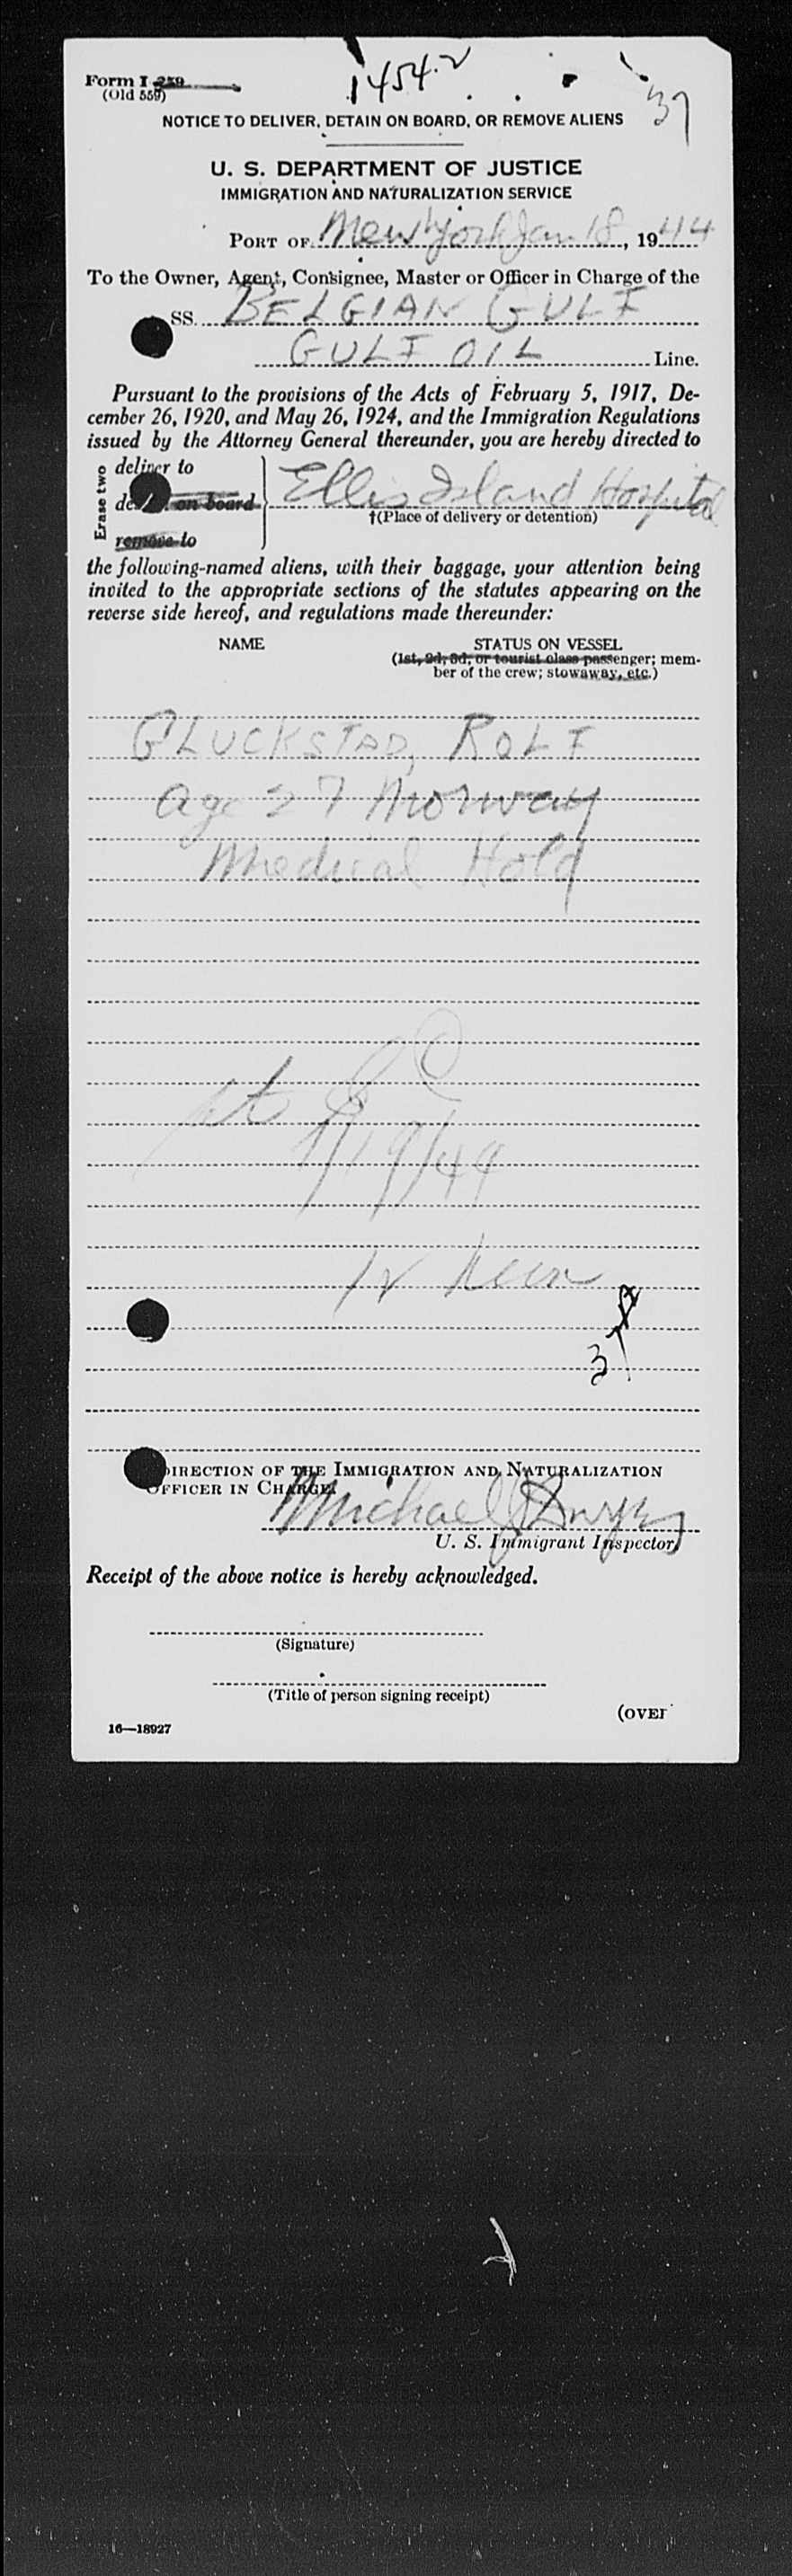 1454-2
Form I-259
(Old 559)
37
NOTICE TO DELIVER, DETAIN ON BOARD, OR REMOVE ALIENS
U. S. DEPARTMENT OF JUSTICE
IMMIGRATION AND NATURALIZATION SERVICE
PORT OF New York Jan 18, 1944
To the Owner, Agent, Consignee, Master or Officer in Charge of the
SS. BELGIAN GULF
GULF OIL Line.
Pursuant to the provisions of the Acts of February 5, 1917, De-
cember 26, 1920, and May 26, 1924, and the Immigration Regulations
issued by the Attorney General thereunder, you are hereby directed to
Erase two
deliver to
on board
remove to
Ellis Island Hospital
†(Place of delivery or detention)
the following-named aliens, with their baggage, your attention being
invited to the appropriate sections of the statutes appearing on the
reverse side hereof, and regulations made thereunder:
NAME STATUS ON VESSEL
(1st, 2d, 3d, or tourist class passenger; mem-
ber of the crew; stowaway, etc.)
GLUCKSTAD, ROLF
age 27 Norway
Medical Hold
1/19/44
12 noon
37
DIRECTION OF THE IMMIGRATION AND NATURALIZATION
OFFICER IN CHARGE.
Michael J Dwyer
U. S. Immigrant Inspector.
Receipt of the above notice is hereby acknowledged.
(Signature)
(Title of person signing receipt)
(OVER
16—18927